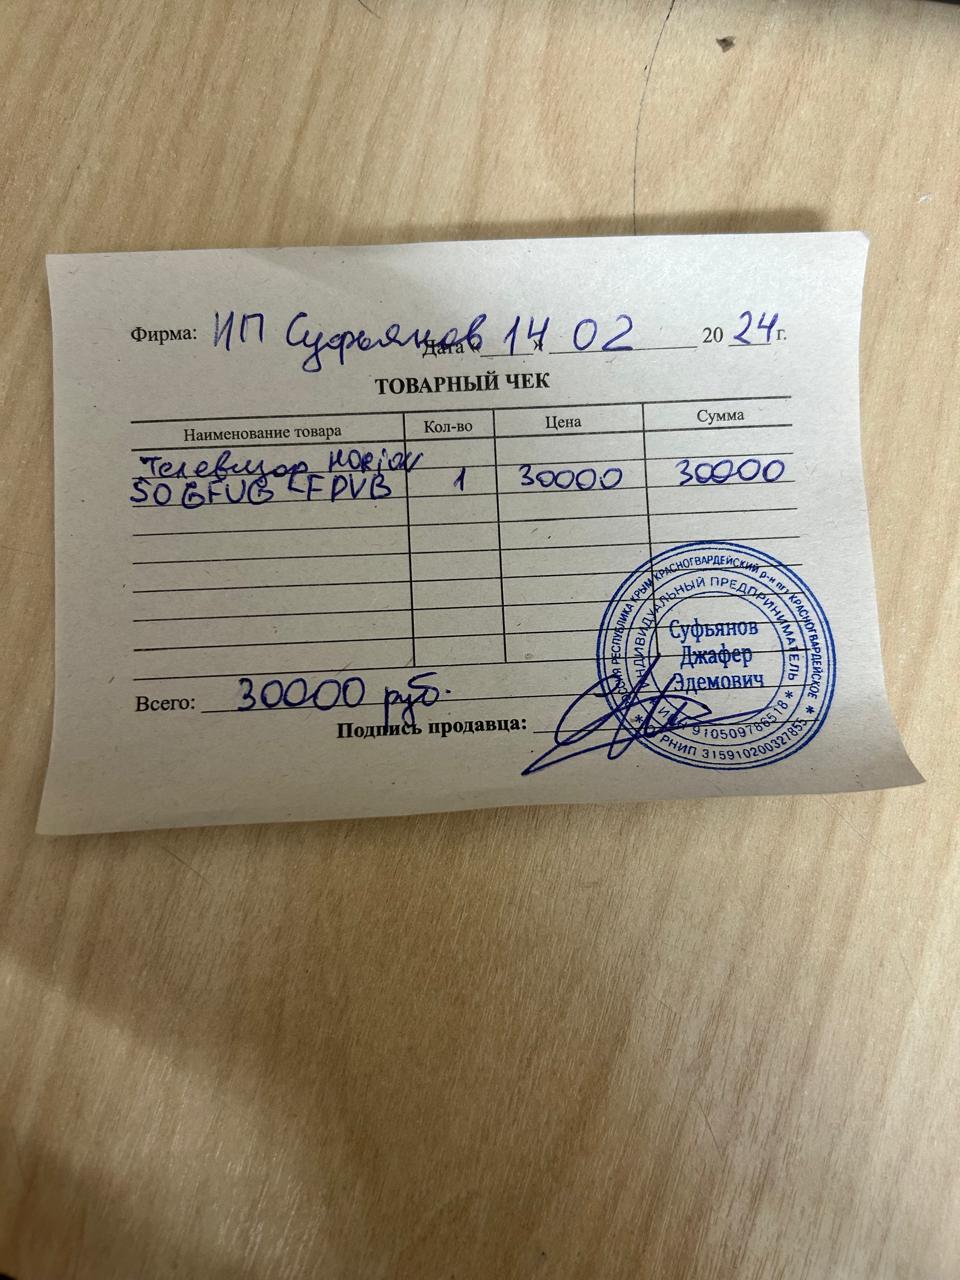 Фирма: ИП Суфьянов Дата «14» 02 2024 г.
ТОВАРНЫЙ ЧЕК
Наименование товара Кол-во Цена Сумма
Телевизор
1 30000 30000
Всего: 30000 руб.
Подпись продавца:
РЕСПУБЛИКА КРЫМ КРАСНОГВАРДЕЙСКИЙ р-н пгт КРАСНОГВАРДЕЙСКОЕ
ИНДИВИДУАЛЬНЫЙ ПРЕДПРИНИМАТЕЛЬ
Суфьянов
Джафер
Эдемович
ИНН 910509786518
ОГРНИП 315910200327855